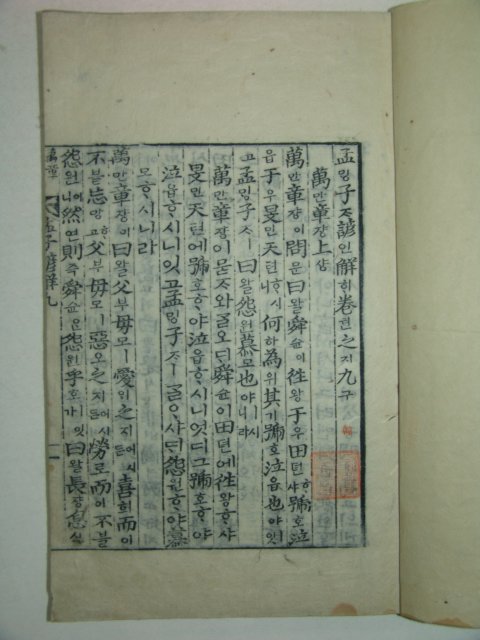 孟밍子ᄌᆞ諺언解ᄒᆡ卷권之지九구
萬만章쟝上샹
萬만章쟝이問문曰왈舜슌이往왕于우田뎐ᄒᆞ샤號호泣
읍于우旻민天텬ᄒᆞ시니何하爲위其기號호泣읍也야잇
고孟밍子ᄌᆞㅣ曰왈怨원慕모也야ㅣ시니라
萬만章쟝이묻ᄌᆞ와ᄀᆞᆯ오ᄃᆡ舜슌이田뎐에往왕ᄒᆞ샤
旻민天텬에號호ᄒᆞ야泣읍ᄒᆞ시니엇디그號호ᄒᆞ야
泣읍ᄒᆞ시니잇고孟밍子ᄌᆞㅣᄀᆞᆯᄋᆞ샤ᄃᆡ怨원ᄒᆞ야慕
모ᄒᆞ시니라
萬만章쟝이曰왈父부母모ㅣ愛ᄋᆡ之지어시든喜희而이
不블忘망ᄒᆞ고父부母모ㅣ惡오之지어시든勞로而이不블
怨원이니然연則즉舜슌은怨원乎호ㅣ잇가曰왈長쟝息식
孟子諺解九
一